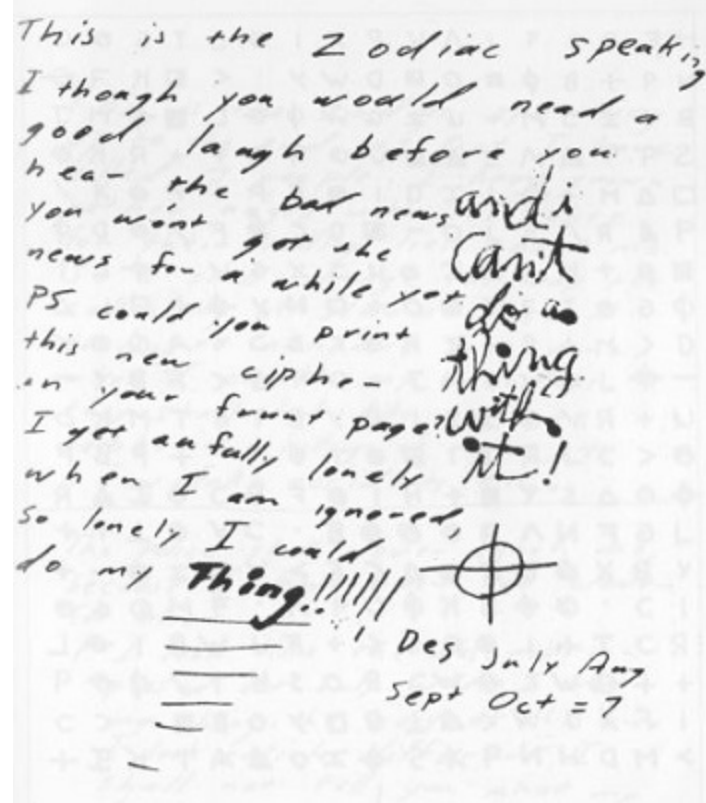 This is the Zodiac speaking
I though you would need a
good laugh before you
hear the bad news
you wont get the
news for a while yet
PS could you print
this new cipher
on your frunt page?
I get awfully lonely
when I am ignored,
so lonely I could
do my Thing!!!!!!
and i
can't
do a
thing
with
it!
Des July Aug
Sept Oct = 7